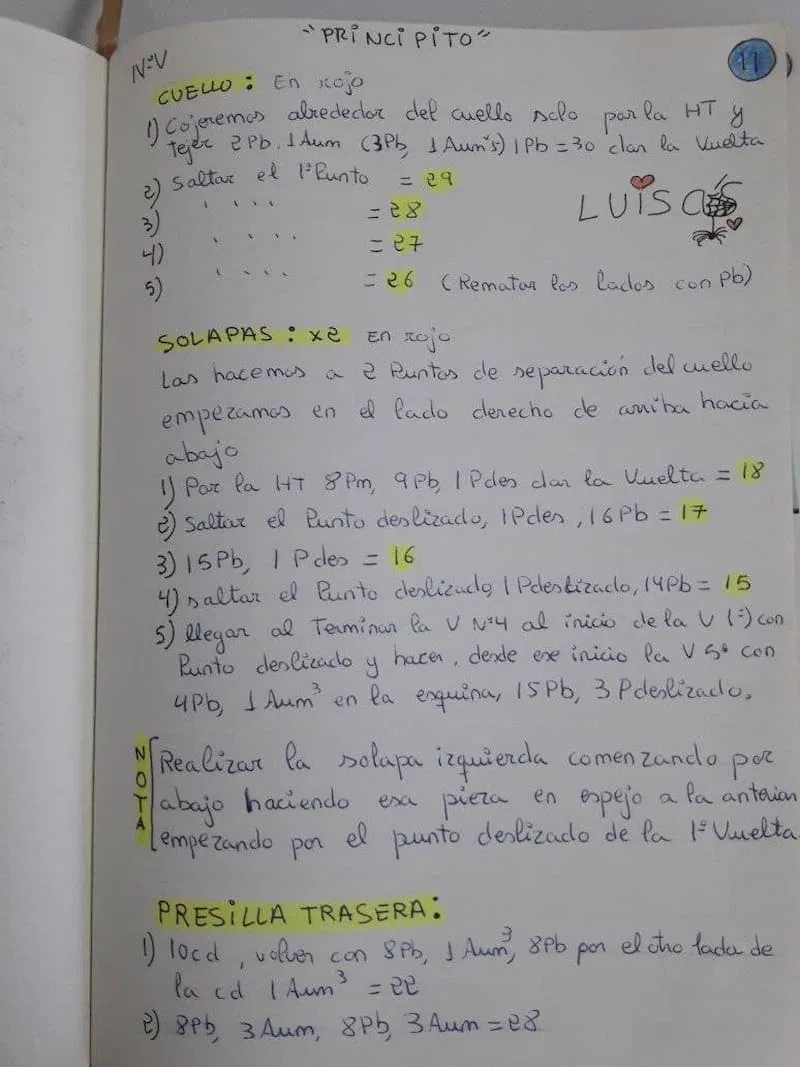 "PRINCIPITO"
11
NºV
CUELLO: En rojo
1) Cojeremos alrededor del cuello solo por la HT y
tejer 2Pb, 1Aum (3Pb, 1Aum's) 1Pb = 30 dar la Vuelta
2) Saltar el 1º Punto = 29
3) " " " " = 28
4) " " " " = 27
5) " " " " = 26 (Rematar los lados con Pb)
LUISA
SOLAPAS: x2 En rojo
Las hacemos a 2 Puntos de separación del cuello
empezamos en el lado derecho de arriba hacia
abajo
1) Por la HT 8Pm, 9Pb, 1Pdes dar la Vuelta = 18
2) Saltar el Punto deslizado, 1Pdes, 16Pb = 17
3) 15Pb, 1Pdes = 16
4) saltar el Punto deslizado, 1Pdeslizado, 14Pb = 15
5) llegar al Terminar la V Nº4 al inicio de la V (1º) con
Punto deslizado y hacer, desde ese inicio la V 5ª con
4Pb, 1Aum³ en la esquina, 15Pb, 3Pdeslizado.
NOTA
Realizar la solapa izquierda comenzando por
abajo haciendo esa pieza en espejo a la anterior
empezando por el punto deslizado de la 1º Vuelta
PRESILLA TRASERA:
1) 10cd, volver con 8Pb, 1Aum³, 8Pb por el otro lado de
la cd 1Aum³ = 22
2) 8Pb, 3Aum, 8Pb, 3Aum = 28